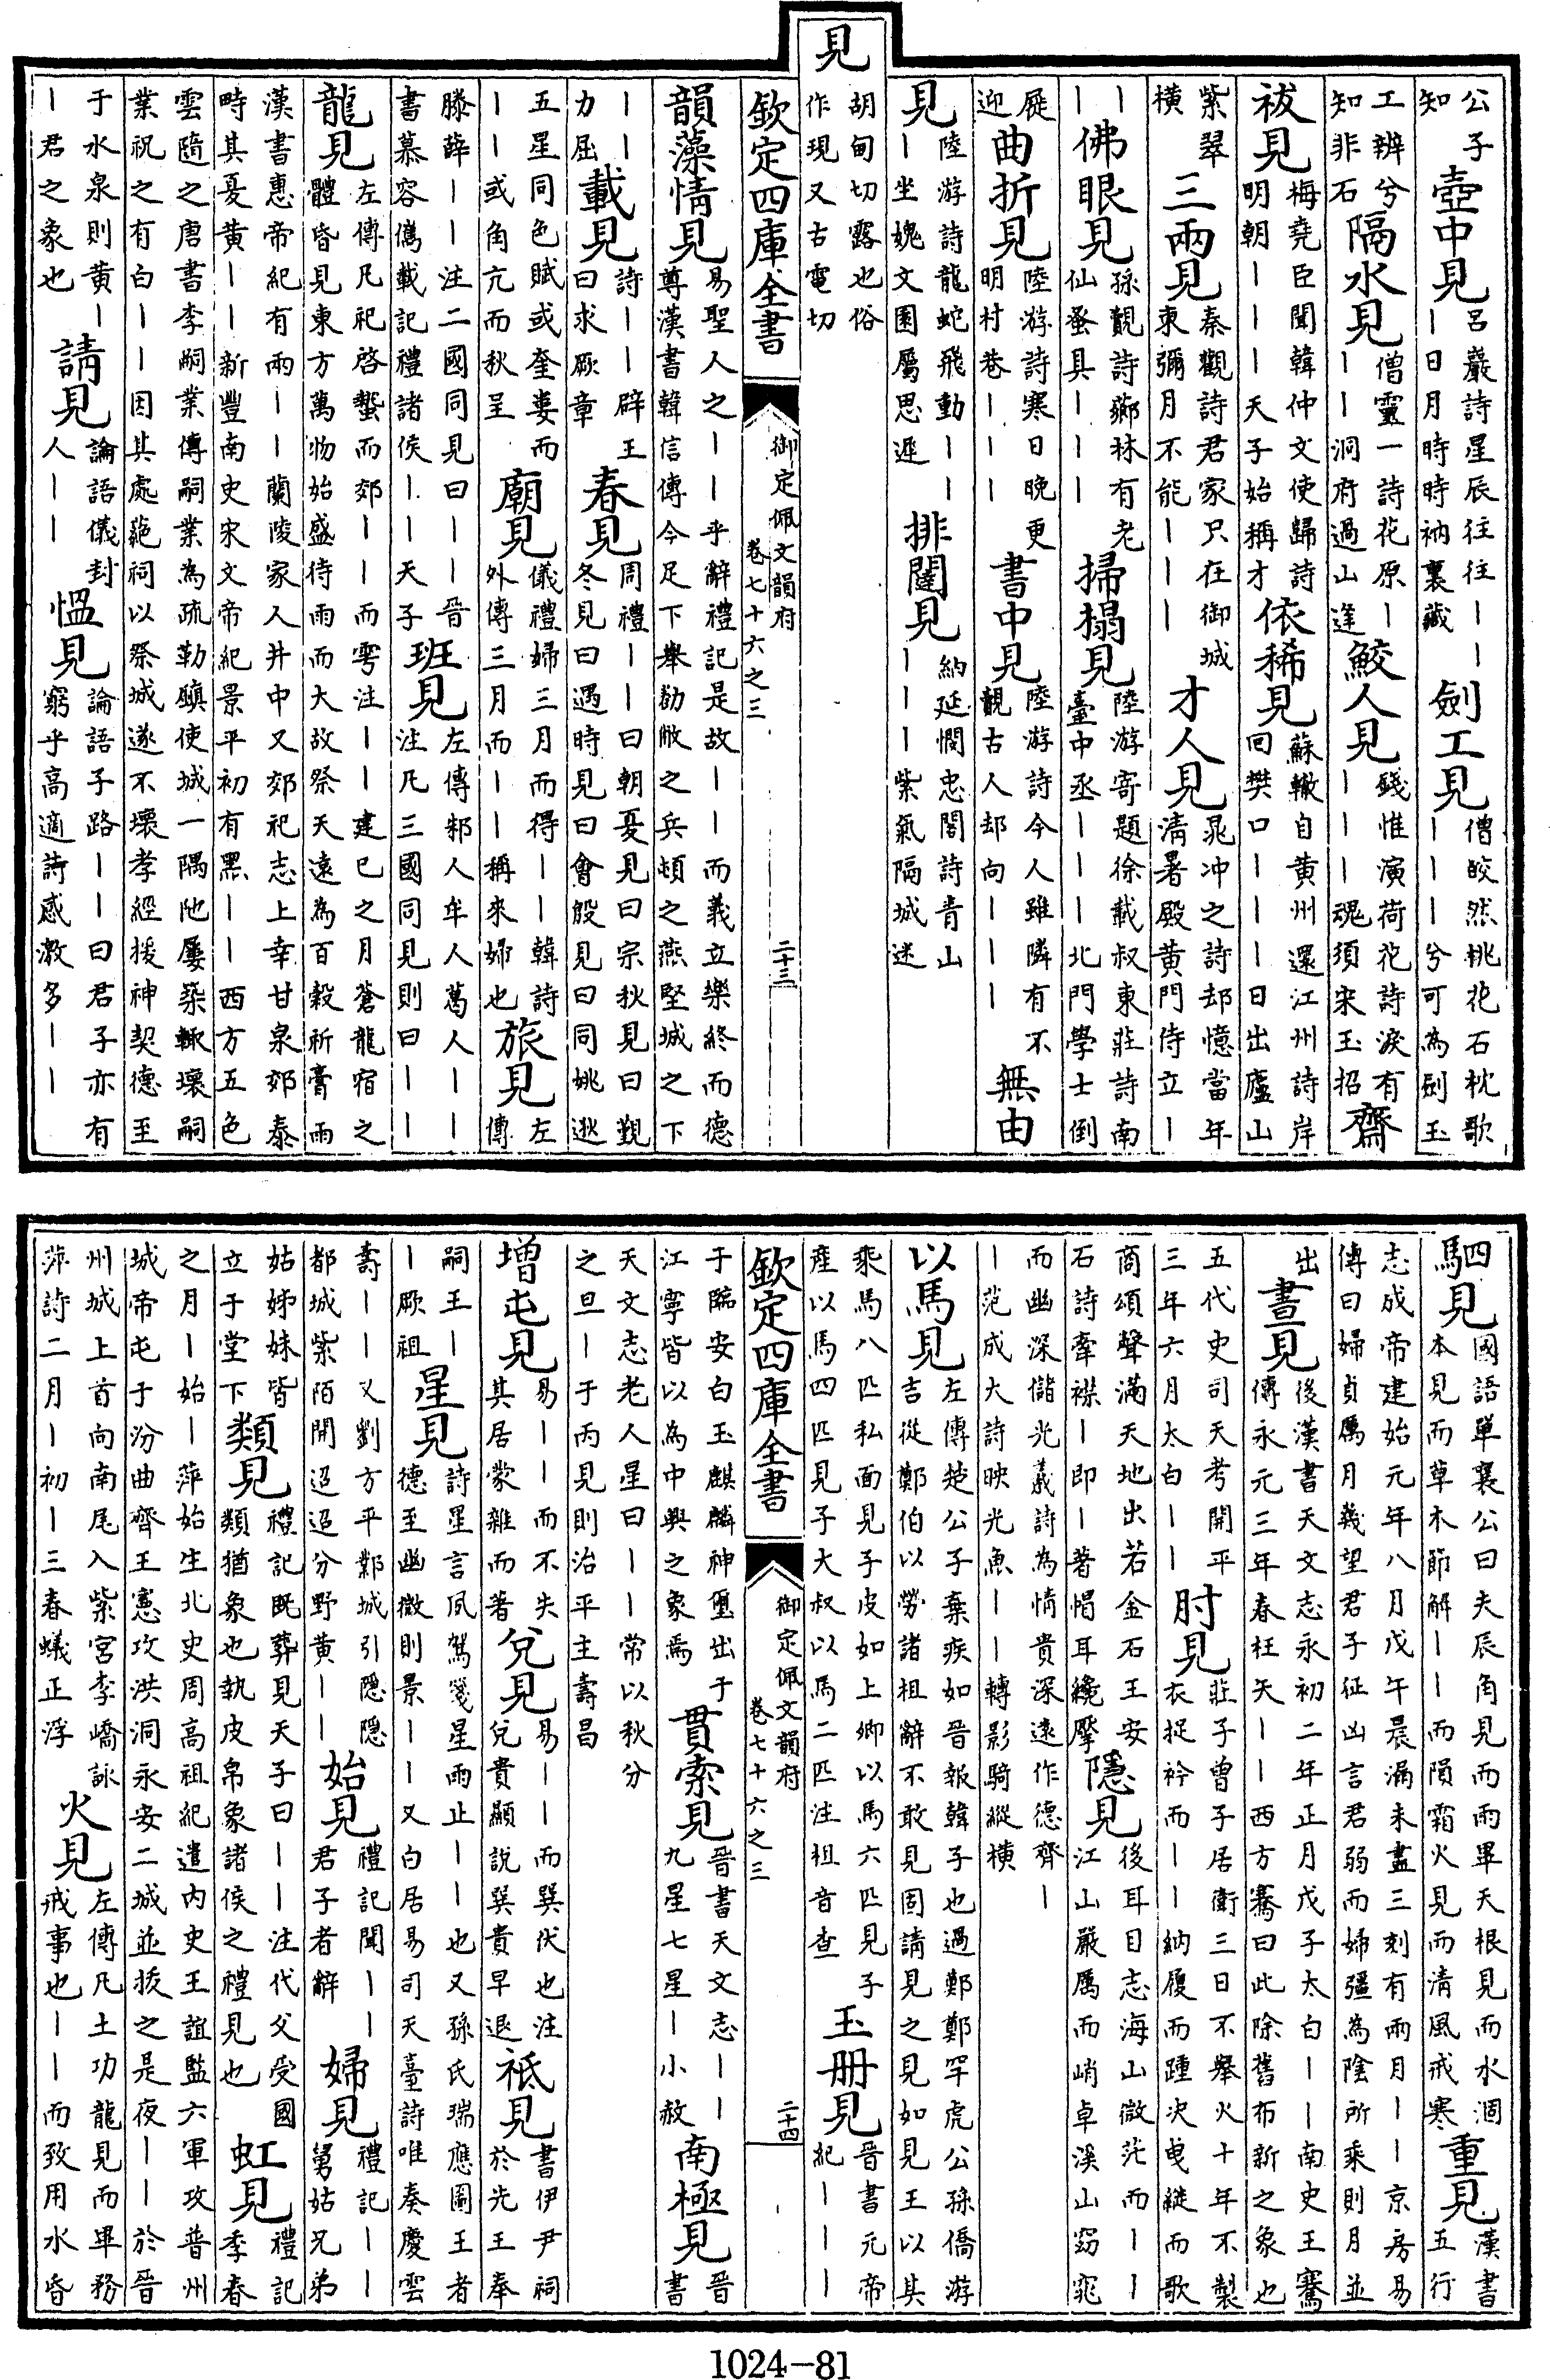 見
公子知 壺中見 呂巖詩星辰往往丨丨丨日月時時衲裏藏 劍工見 僧皎然桃花石枕歌丨丨丨兮可為劍玉
工辨兮知非石 隔水見 僧靈一詩花原丨丨丨洞府過山逢 鮫人見 錢惟演荷花詩淚有丨丨丨魂須宋玉招 齋
祓見 梅堯臣聞韓仲文使歸詩明朝丨丨丨天子始稱才 依稀見 蘇轍自黃州還江州詩岸回樊口丨丨丨日出廬山
紫翠橫 三兩見 秦觀詩君家只在御城東彌月不能丨丨丨 才人見 晁冲之詩却憶當年清暑殿黃門侍立丨
丨丨 佛眼見 孫覿詩薌林有老仙蚤具丨丨丨 掃榻見 陸游寄題徐載叔東莊詩南臺中丞丨丨丨北門學士倒
屣迎 曲折見 陸游詩寒日晚更明村巷丨丨丨 書中見 陸游詩今人雖隣有不覿古人却向丨丨丨 無由
見 陸游詩龍蛇飛動丨丨丨坐媿文園屬思遲 排闥見 納延憫忠閣詩青山丨丨丨紫氣隔城迷
胡甸切露也俗作現又古電切
欽定四庫全書 御定佩文韻府 卷七十六之三 二十三
韻藻情見 易聖人之丨丨乎辭禮記是故丨丨而義立樂終而德尊漢書韓信傳今足下舉勌敝之兵頓之燕堅城之下
丨丨力屈 載見 詩丨丨辟王曰求厥章 春見 周禮丨丨曰朝夏見曰宗秋見曰覲冬見曰遇時見曰會殷見曰同姚逖
五星同色賦或奎婁而丨丨或角亢而秋呈 廟見 儀禮婦三月而得丨丨韓詩外傳三月而丨丨稱來婦也 旅見 左傳
滕薛丨丨注二國同見曰丨丨晉書慕容儁載記禮諸侯丨丨天子 班見 左傳邾人牟人葛人丨丨注凡三國同見則曰丨丨
龍見 左傳凡祀啓蟄而郊丨丨而雩注丨丨建巳之月蒼龍宿之體昏見東方萬物始盛待雨而大故祭天遠為百穀祈膏雨
漢書惠帝紀有兩丨丨蘭陵家人井中又郊祀志上幸甘泉郊泰畤其夏黃丨丨新豐南史宋文帝紀景平初有黑丨丨西方五色
雲隨之唐書李嗣業傳嗣業為疏勒鎮使城一隅阤屢築輒壞嗣業祝之有白丨丨因其處葩祠以祭城遂不壞孝經援神契德至
于水泉則黃丨丨君之象也 請見 論語儀封人丨丨 慍見 論語子路丨丨曰君子亦有窮乎高適詩感激多丨丨
駟見 國語單襄公曰夫辰角見而雨畢天根見而水涸本見而草木節解丨丨而隕霜火見而清風戒寒 重見 漢書五行
志成帝建始元年八月戊午晨漏未盡三刻有兩月丨丨京房易傳曰婦貞厲月幾望君子征凶言君弱而婦彊為陰所乘則月並
出 晝見 後漢書天文志永初二年正月戊子太白丨丨南史王騫傳永元三年春枉矢丨丨西方騫曰此除舊布新之象也
五代史司天考開平三年六月太白丨丨 肘見 莊子曾子居衛三日不舉火十年不製衣捉衿而丨丨納履而踵決曵縱而歌
商頌聲滿天地出若金石王安石詩牽襟丨即丨著帽耳纔擪 隱見 後耳目志海山微茫而丨丨江山嚴厲而峭卓溪山窈窕
而幽深儲光羲詩為情貴深遠作德齊丨丨范成大詩映光魚丨丨轉影騎縱横
以馬見 左傳楚公子棄疾如晉報韓子也過鄭鄭罕虎公孫僑游吉從鄭伯以勞諸柤辭不敢見固請見之見如見王以其
乘馬八匹私面見子皮如上卿以馬六匹見子產以馬四匹見子大叔以馬二匹注柤音查 玉册見 晉書元帝紀丨丨丨
欽定四庫全書 御定佩文韻府 卷七十六之三 二十四
于臨安白玉麒麟神璽出于江寧皆以為中興之象焉 貫索見 晉書天文志丨丨九星七星丨小赦 南極見 晉書
天文志老人星曰丨丨常以秋分之旦丨于丙見則治平主壽昌
增屯見 易丨丨而不失其居蒙雜而著 兌見 易丨丨而巽伏也注兌貴顯說巽貴早退 祗見 書伊尹祠于先王奉
嗣王丨丨厥祖 星見 詩星言夙駕箋星雨止丨丨也又孫氏瑞應圖王者德至幽微則景丨丨又白居易司天臺詩唯奏慶雲
壽丨丨又劉方平鄴城引隱隱都城紫陌開迢迢分野黃丨丨 始見 禮記聞丨丨君子者辭 婦見 禮記丨丨舅姑兄弟
姑姊妹皆立于堂下 類見 禮記既葬見天子曰丨丨注代父受國類猶象也執皮帛象諸侯之禮見也 虹見 禮記季春
之月丨始丨萍始生北史周高祖紀遣內史王誼監六軍攻晉州城帝屯于汾曲齊王憲攻洪洞永安二城並拔之是夜丨丨於晉
州城上首向南尾入紫宮李嶠詠萍詩二月丨初丨三春蟻正浮 火見 左傳凡土功龍見而畢務戒事也丨丨而致用水昏
1024-81